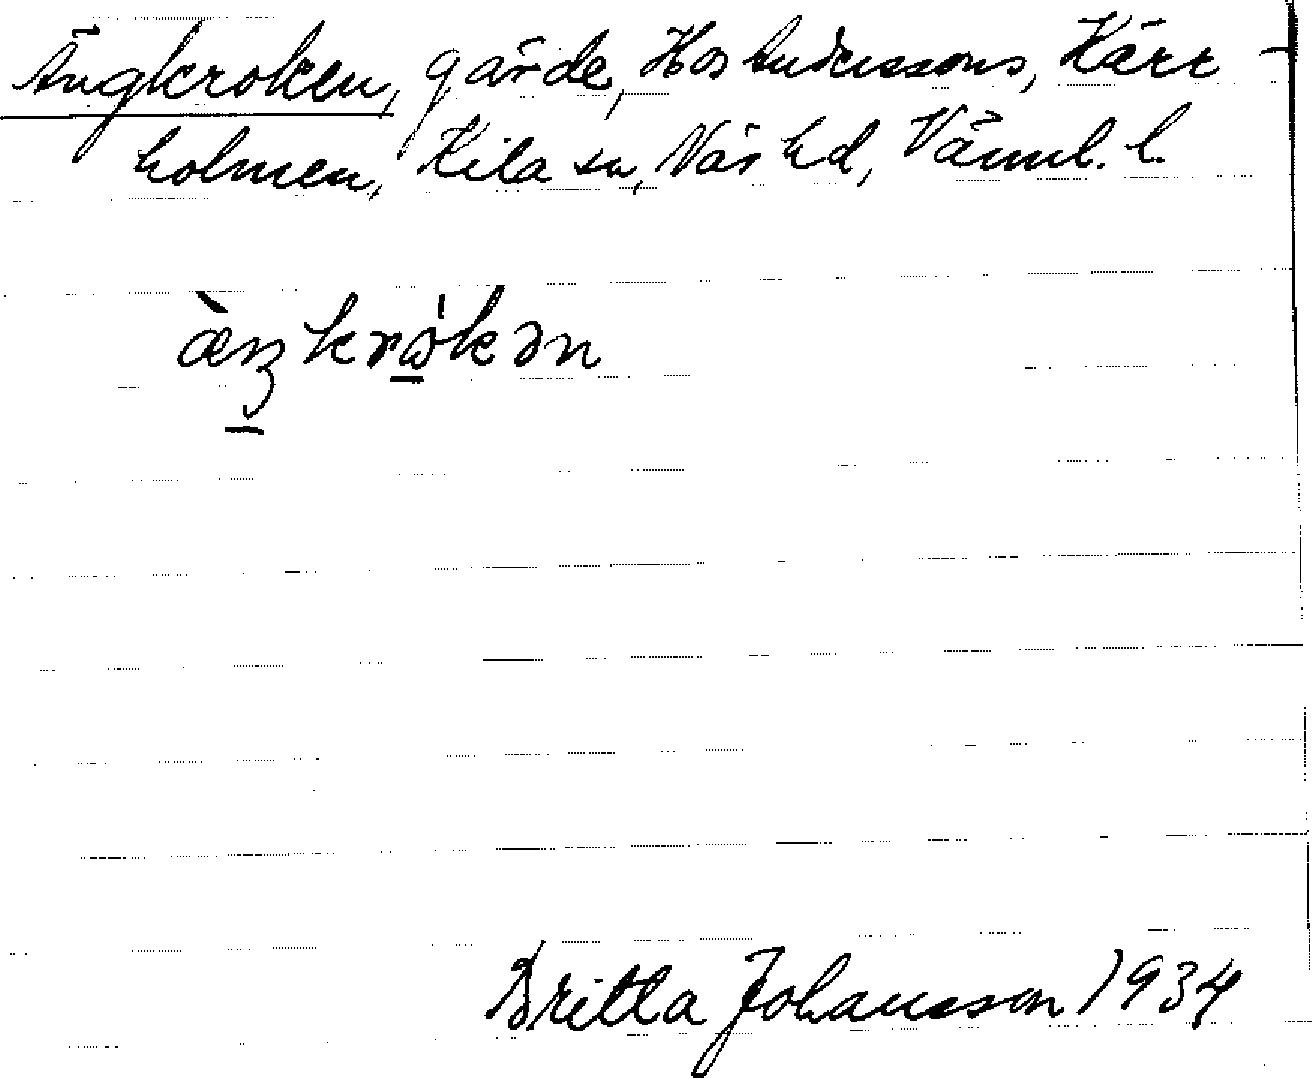 Ängkroken, gärde, Hos Anderssons, Kärr-
holmen, Kila sn, Näs hd, Värml. l.
æ̀ŋkrὼkən
Britta Johansson 1934